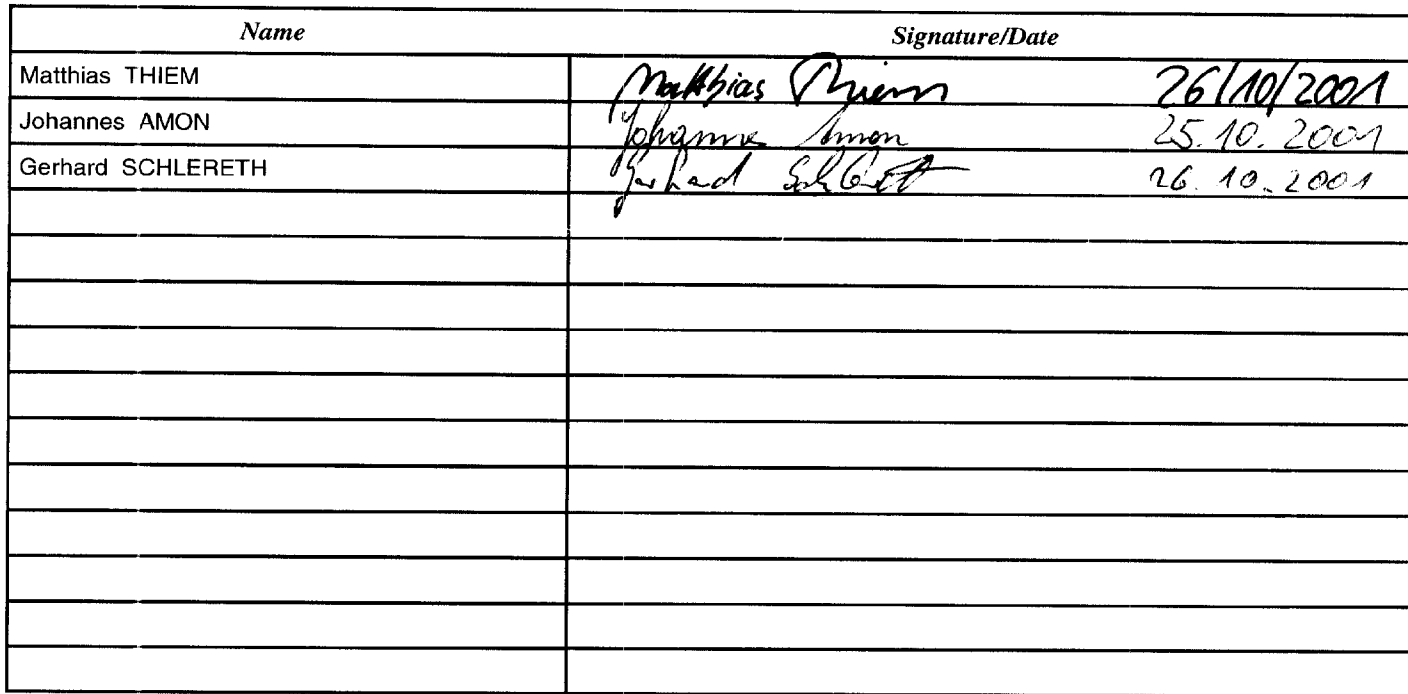 Name Signature/Date
Matthias THIEM Matthias Thiem 26/10/2001
Johannes AMON Johannes Amon 25.10.2001
Gerhard SCHLERETH Gerhard Schlereth 26.10.2001